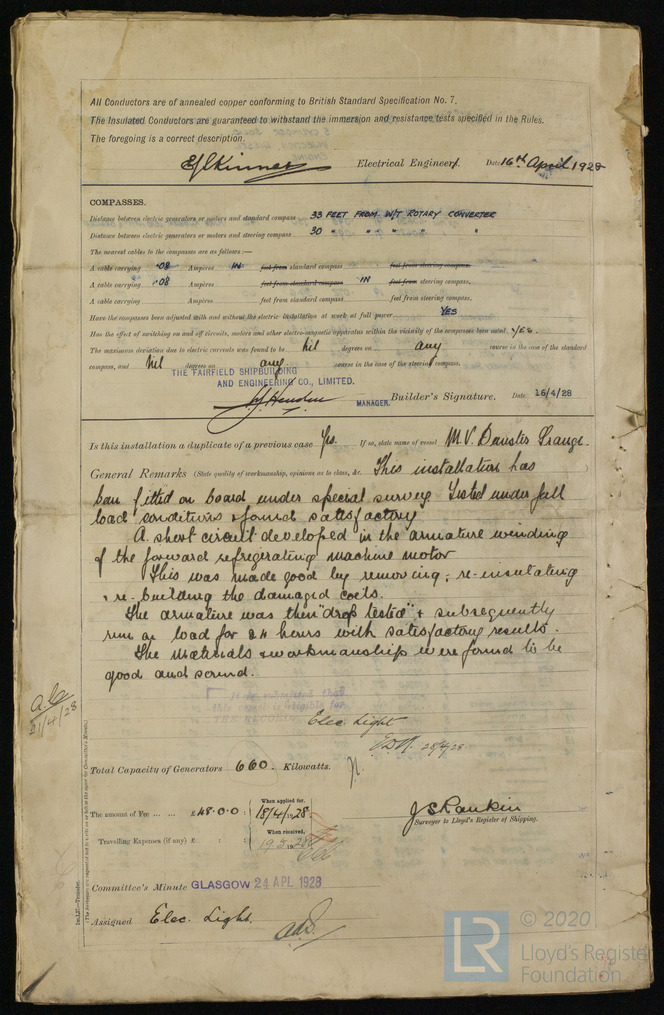 All Conductors are of annealed copper conforming to British Standard Specification No. 7.
The Insulated Conductors are guaranteed to withstand the immersion and resistance tests specified in the Rules.
The foregoing is a correct description.
Electrical Engineers. Date 16th April 1928
COMPASSES.
Distance between electric generators or motors and standard compass 33 FEET FROM W/T ROTARY CONVERTER
Distance between electric generators or motors and steering compass 30 " " " " "
The nearest cables to the compasses are as follows :—
A cable carrying ·08 Ampères IN feet from standard compass feet from steering compass.
A cable carrying ·08 Ampères feet from standard compass IN feet from steering compass.
A cable carrying Ampères feet from standard compass feet from steering compass.
Have the compasses been adjusted with and without the electric installation at work at full power YES
Has the effect of switching on and off circuits, motors and other electro-magnetic apparatus within the vicinity of the compasses been noted yes.
The maximum deviation due to electric currents was found to be Nil degrees on any course in the case of the standard
compass, and Nil degrees on any course in the case of the steering compass.
THE FAIRFIELD SHIPBUILDING
AND ENGINEERING CO., LIMITED.
MANAGER. Builder's Signature. Date 16/4/28
Is this installation a duplicate of a previous case Yes. If so, state name of vessel M.V. Grange.
General Remarks (State quality of workmanship, opinions as to class, &c. This installation has
been fitted on board under special survey Tested under full
load conditions & found satisfactory
A short circuit developed in the armature winding
of the forward refrigerating machine motor
This was made good by removing, re-insulating
& re-building the damaged coils.
The armature was then "drop tested" & subsequently
run on load for 24 hours with satisfactory results.
The materials & workmanship were found to be
good and sound.
21/4/28
It is submitted that
this vessel is eligible for
THE RECORD
Elec. Light
28/4/28
Total Capacity of Generators 660. Kilowatts.
The amount of Fee ... ... £ 48 : 0 : 0 When applied for, 18/4/1928.
Travelling Expenses (if any) £ : : When received,
J S Rankin
Surveyor to Lloyd's Register of Shipping.
Committee's Minute GLASGOW 24 APL 1928
Assigned Elec. Light.
LR © 2020
Lloyd's Register
Foundation